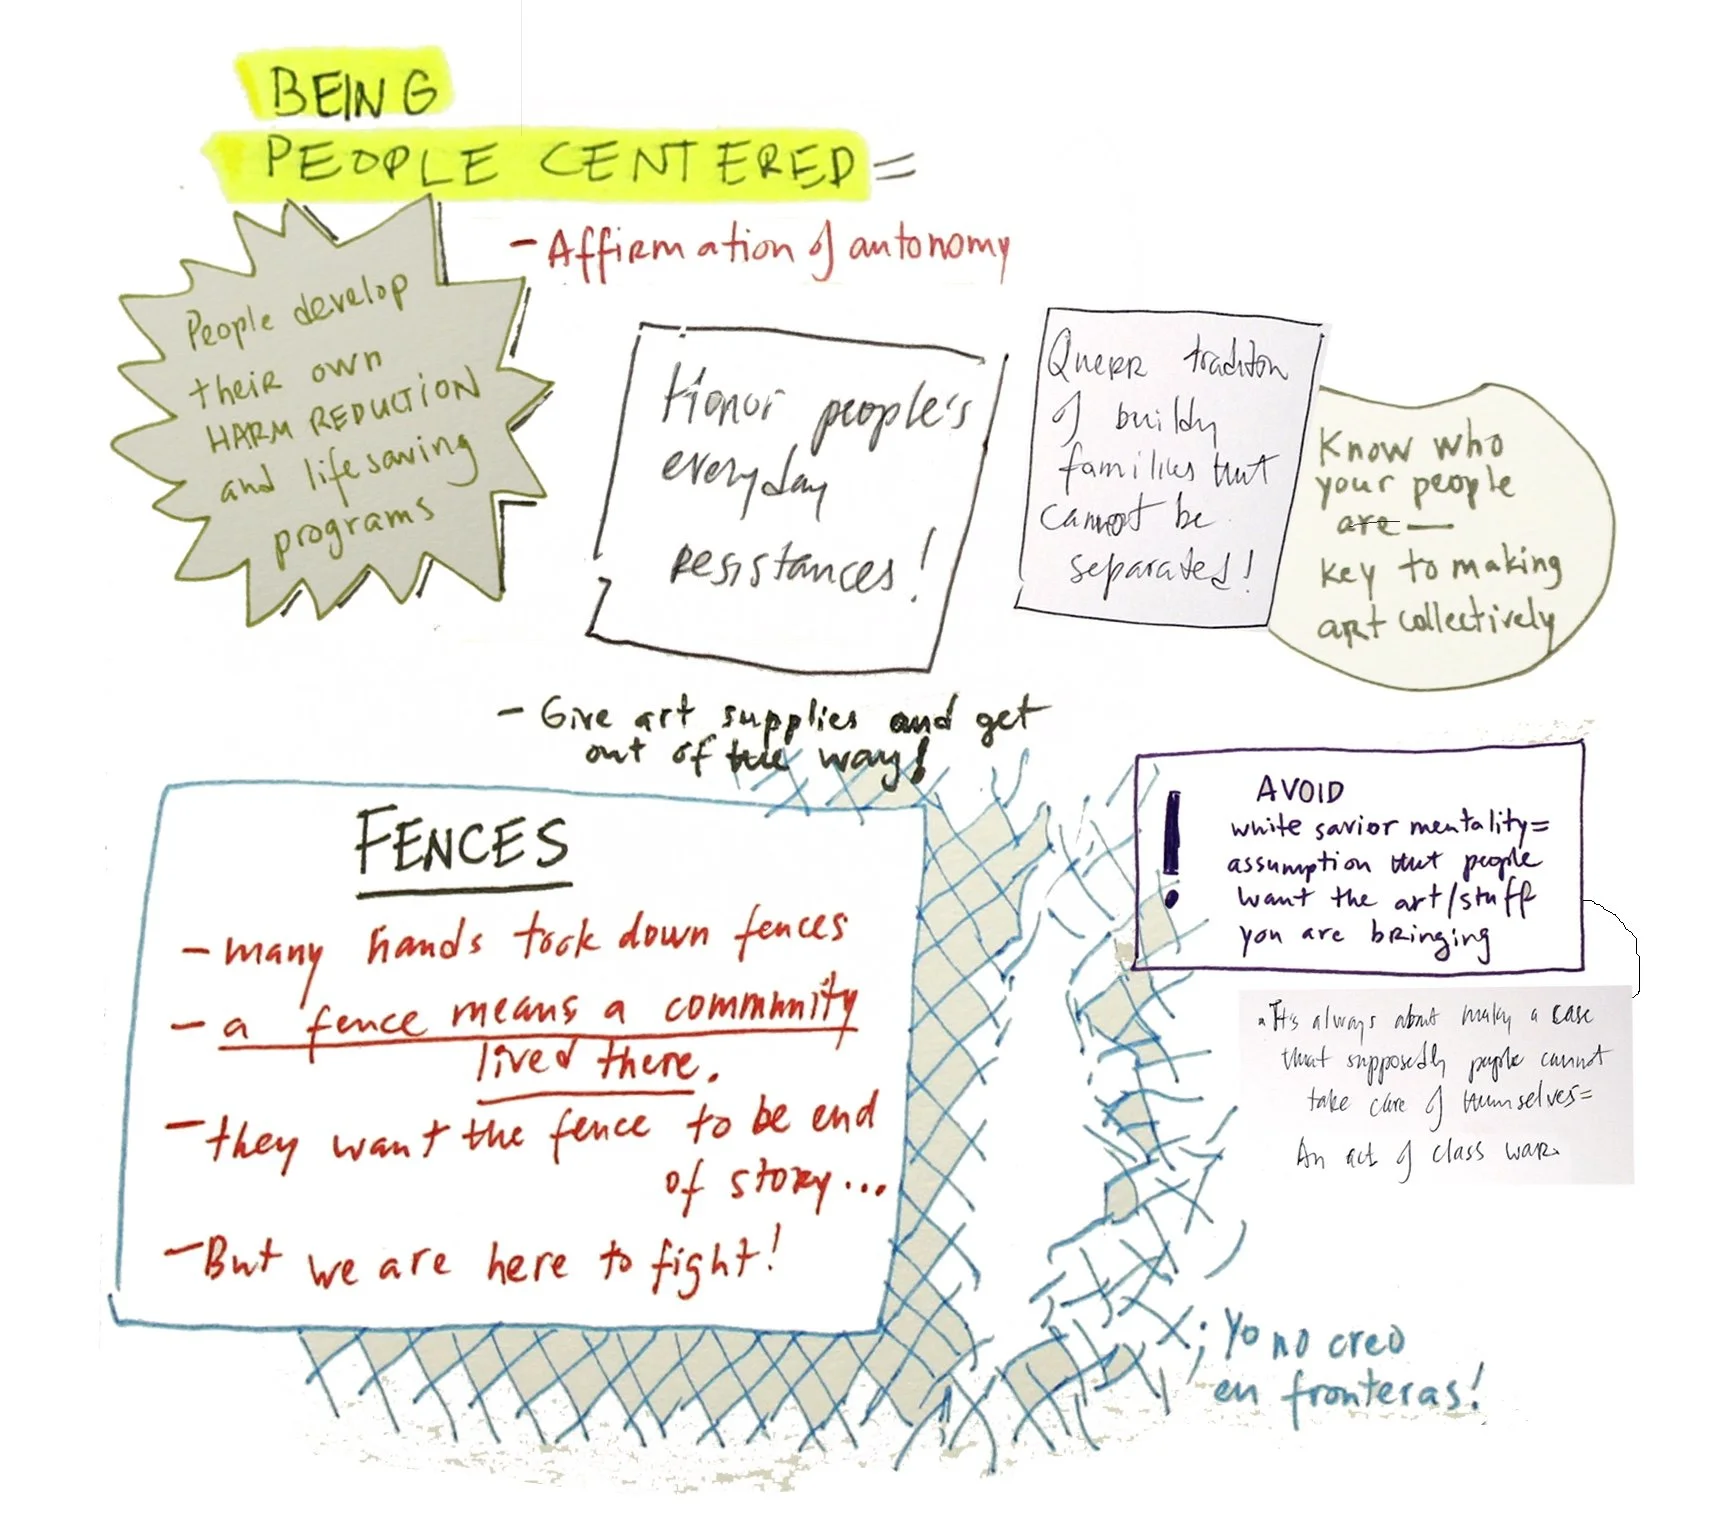 BEING
PEOPLE CENTERED =
- Affirmation of autonomy
People develop
their own
HARM REDUCTION
and lifesaving
programs
Honor people's
everyday
resistances!
Querr traditon
of buildy
families that
cannot be
separated!
Know who
your people
are —
key to making
art collectively
- Give art supplies and get
out of the way!
FENCES
- many hands took down fences
- a fence means a community
lived there.
- they want the fence to be end
of story...
- But we are here to fight!
! AVOID
white savior mentality=
assumption that people
want the art/stuff
you are bringing
• It's always about making a case
that supposedly people cannot
take care of themselves=
An act of class war.
¡Yo no creo
en fronteras!